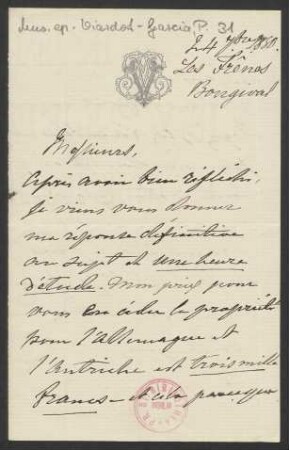 Mus. ep. Viardot-Garcia, P. 31
24 7bre 1880.
Les Frênes
Bougival
Messieurs,
Après avoir bien réfléchi,
je viens vous donner
ma réponse définitive
au sujet de Une heure
d'étude. Mon prix pour
vous en céder la propriété
pour l'Allemagne et
l'Autriche est trois mille
francs — et cela parceque